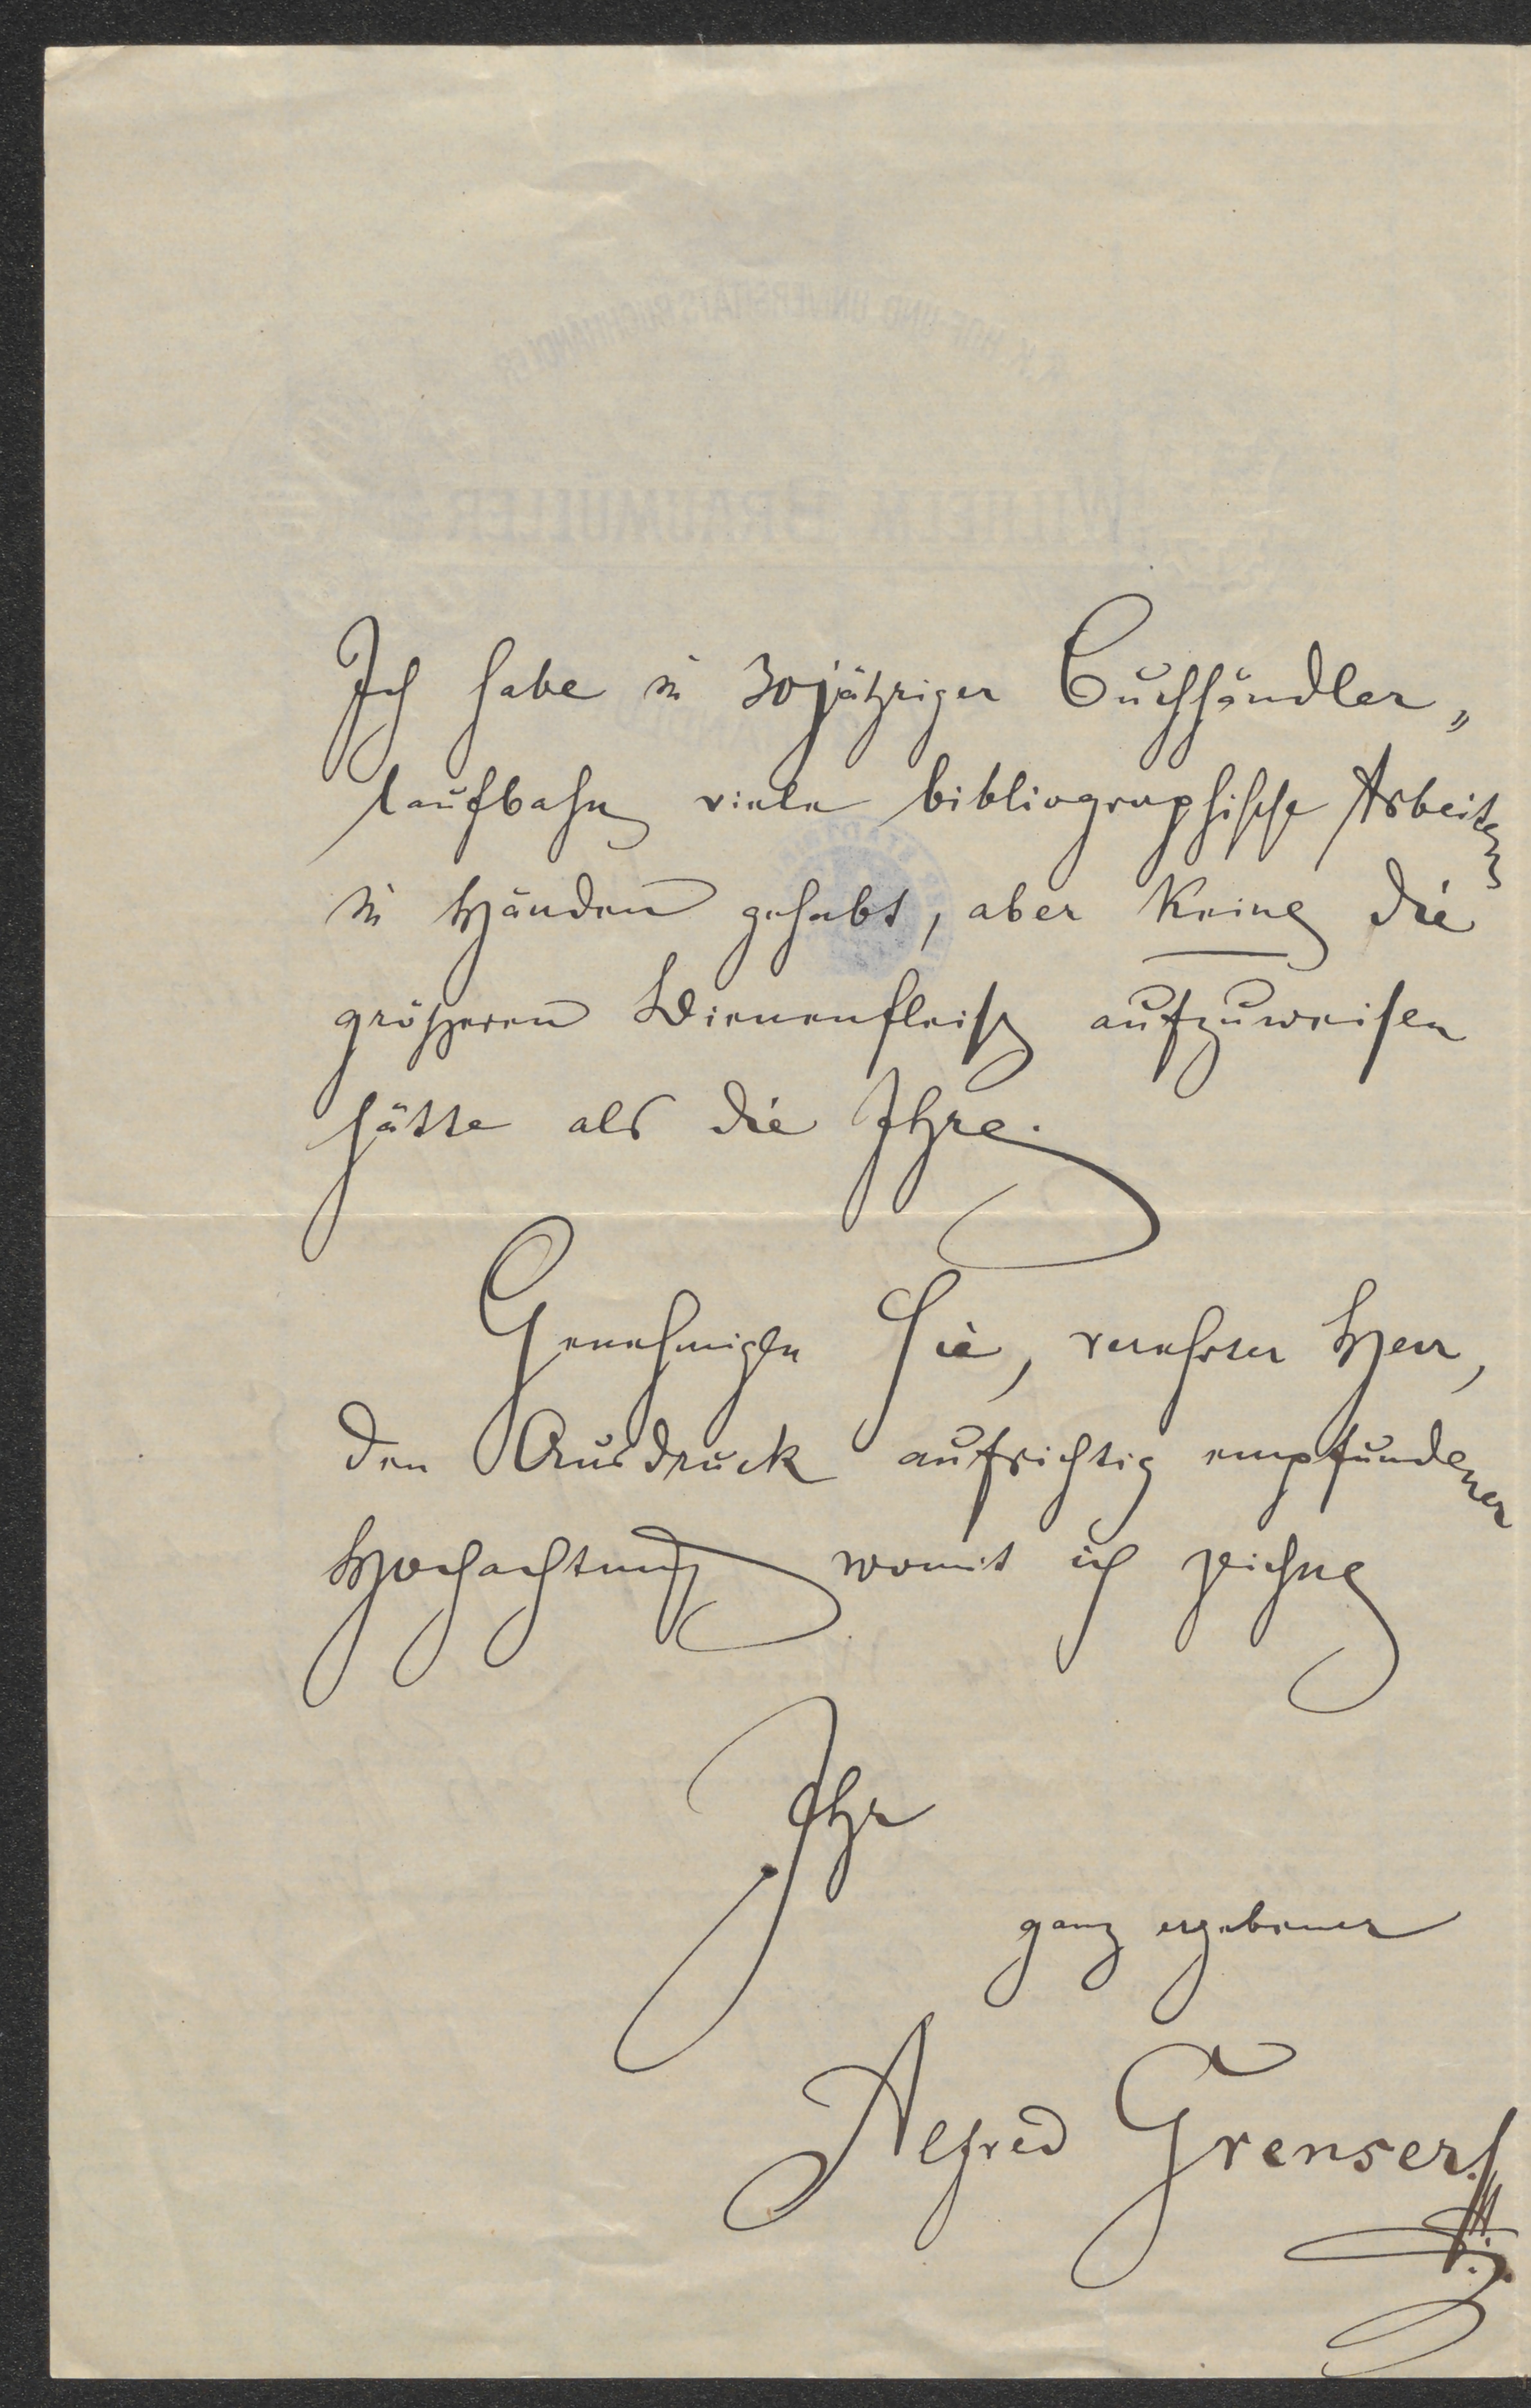 Ich habe in 30jähriger Buchhändler„
laufbahn viele bibliographische Arbeiten
in Händen gehabt, aber keine die
größeren Bienenfleiß aufzuweisen
hätte als die Ihre.
Genehmigen Sie, verehrter Herr,
den Ausdruck aufrichtig empfundener
Hochachtung womit ich zeichne
Ihr
ganz ergebener
Alfred Grenser